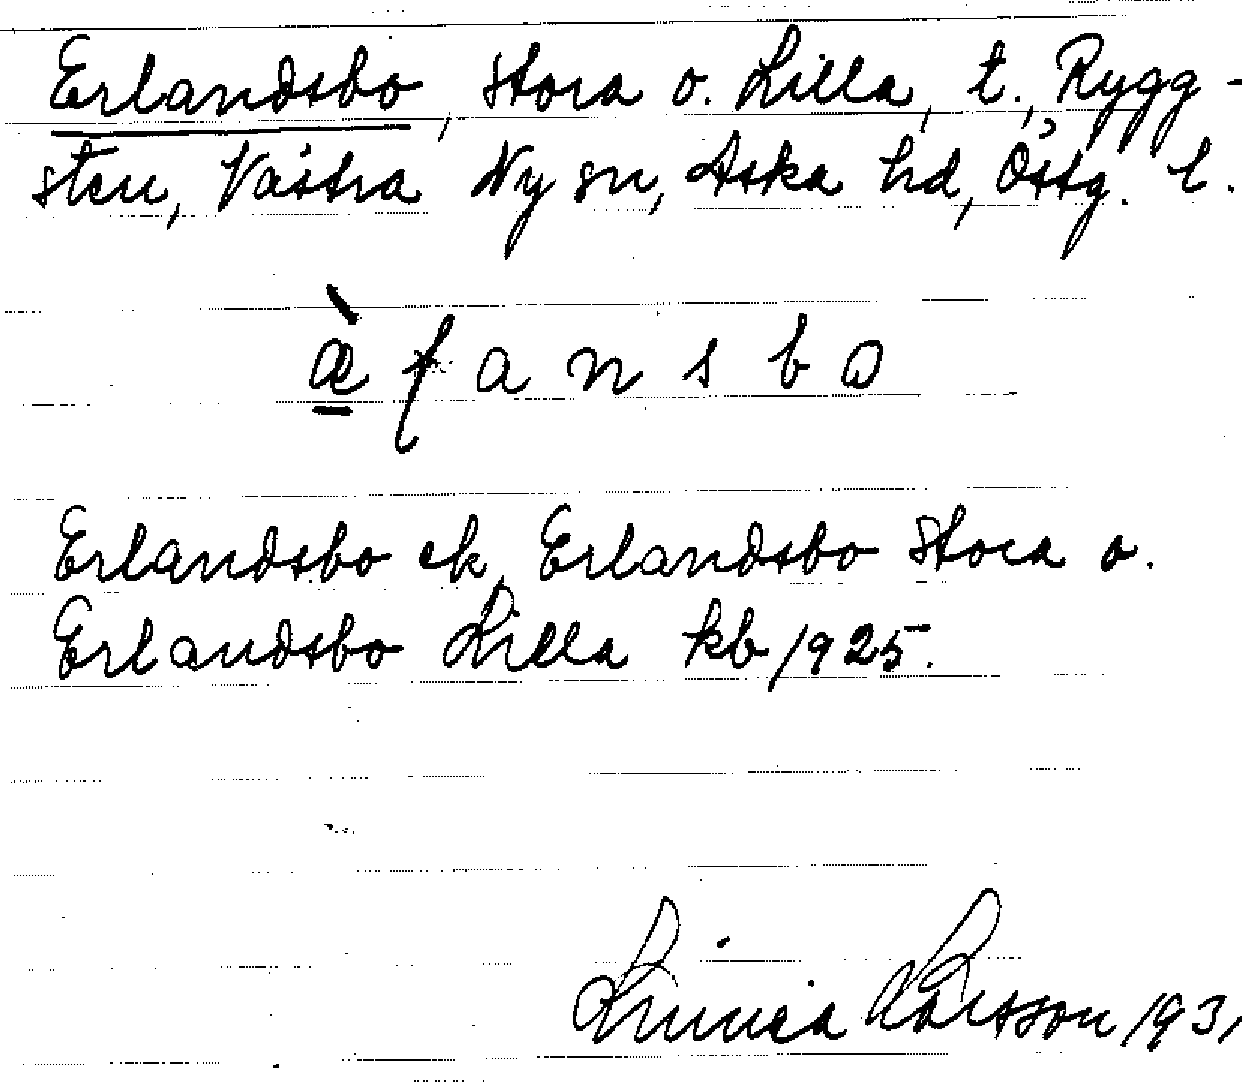 Erlandsbo, Stora o. Lilla, t., Rygg-
sten, Västra Ny sn, Aska hd, Östg. l.
æ̱̀ f a n s b o
Erlandsbo ek, Erlandsbo Stora o.
Erlandsbo Lilla kb 1925.
Linnea Larsson 1931